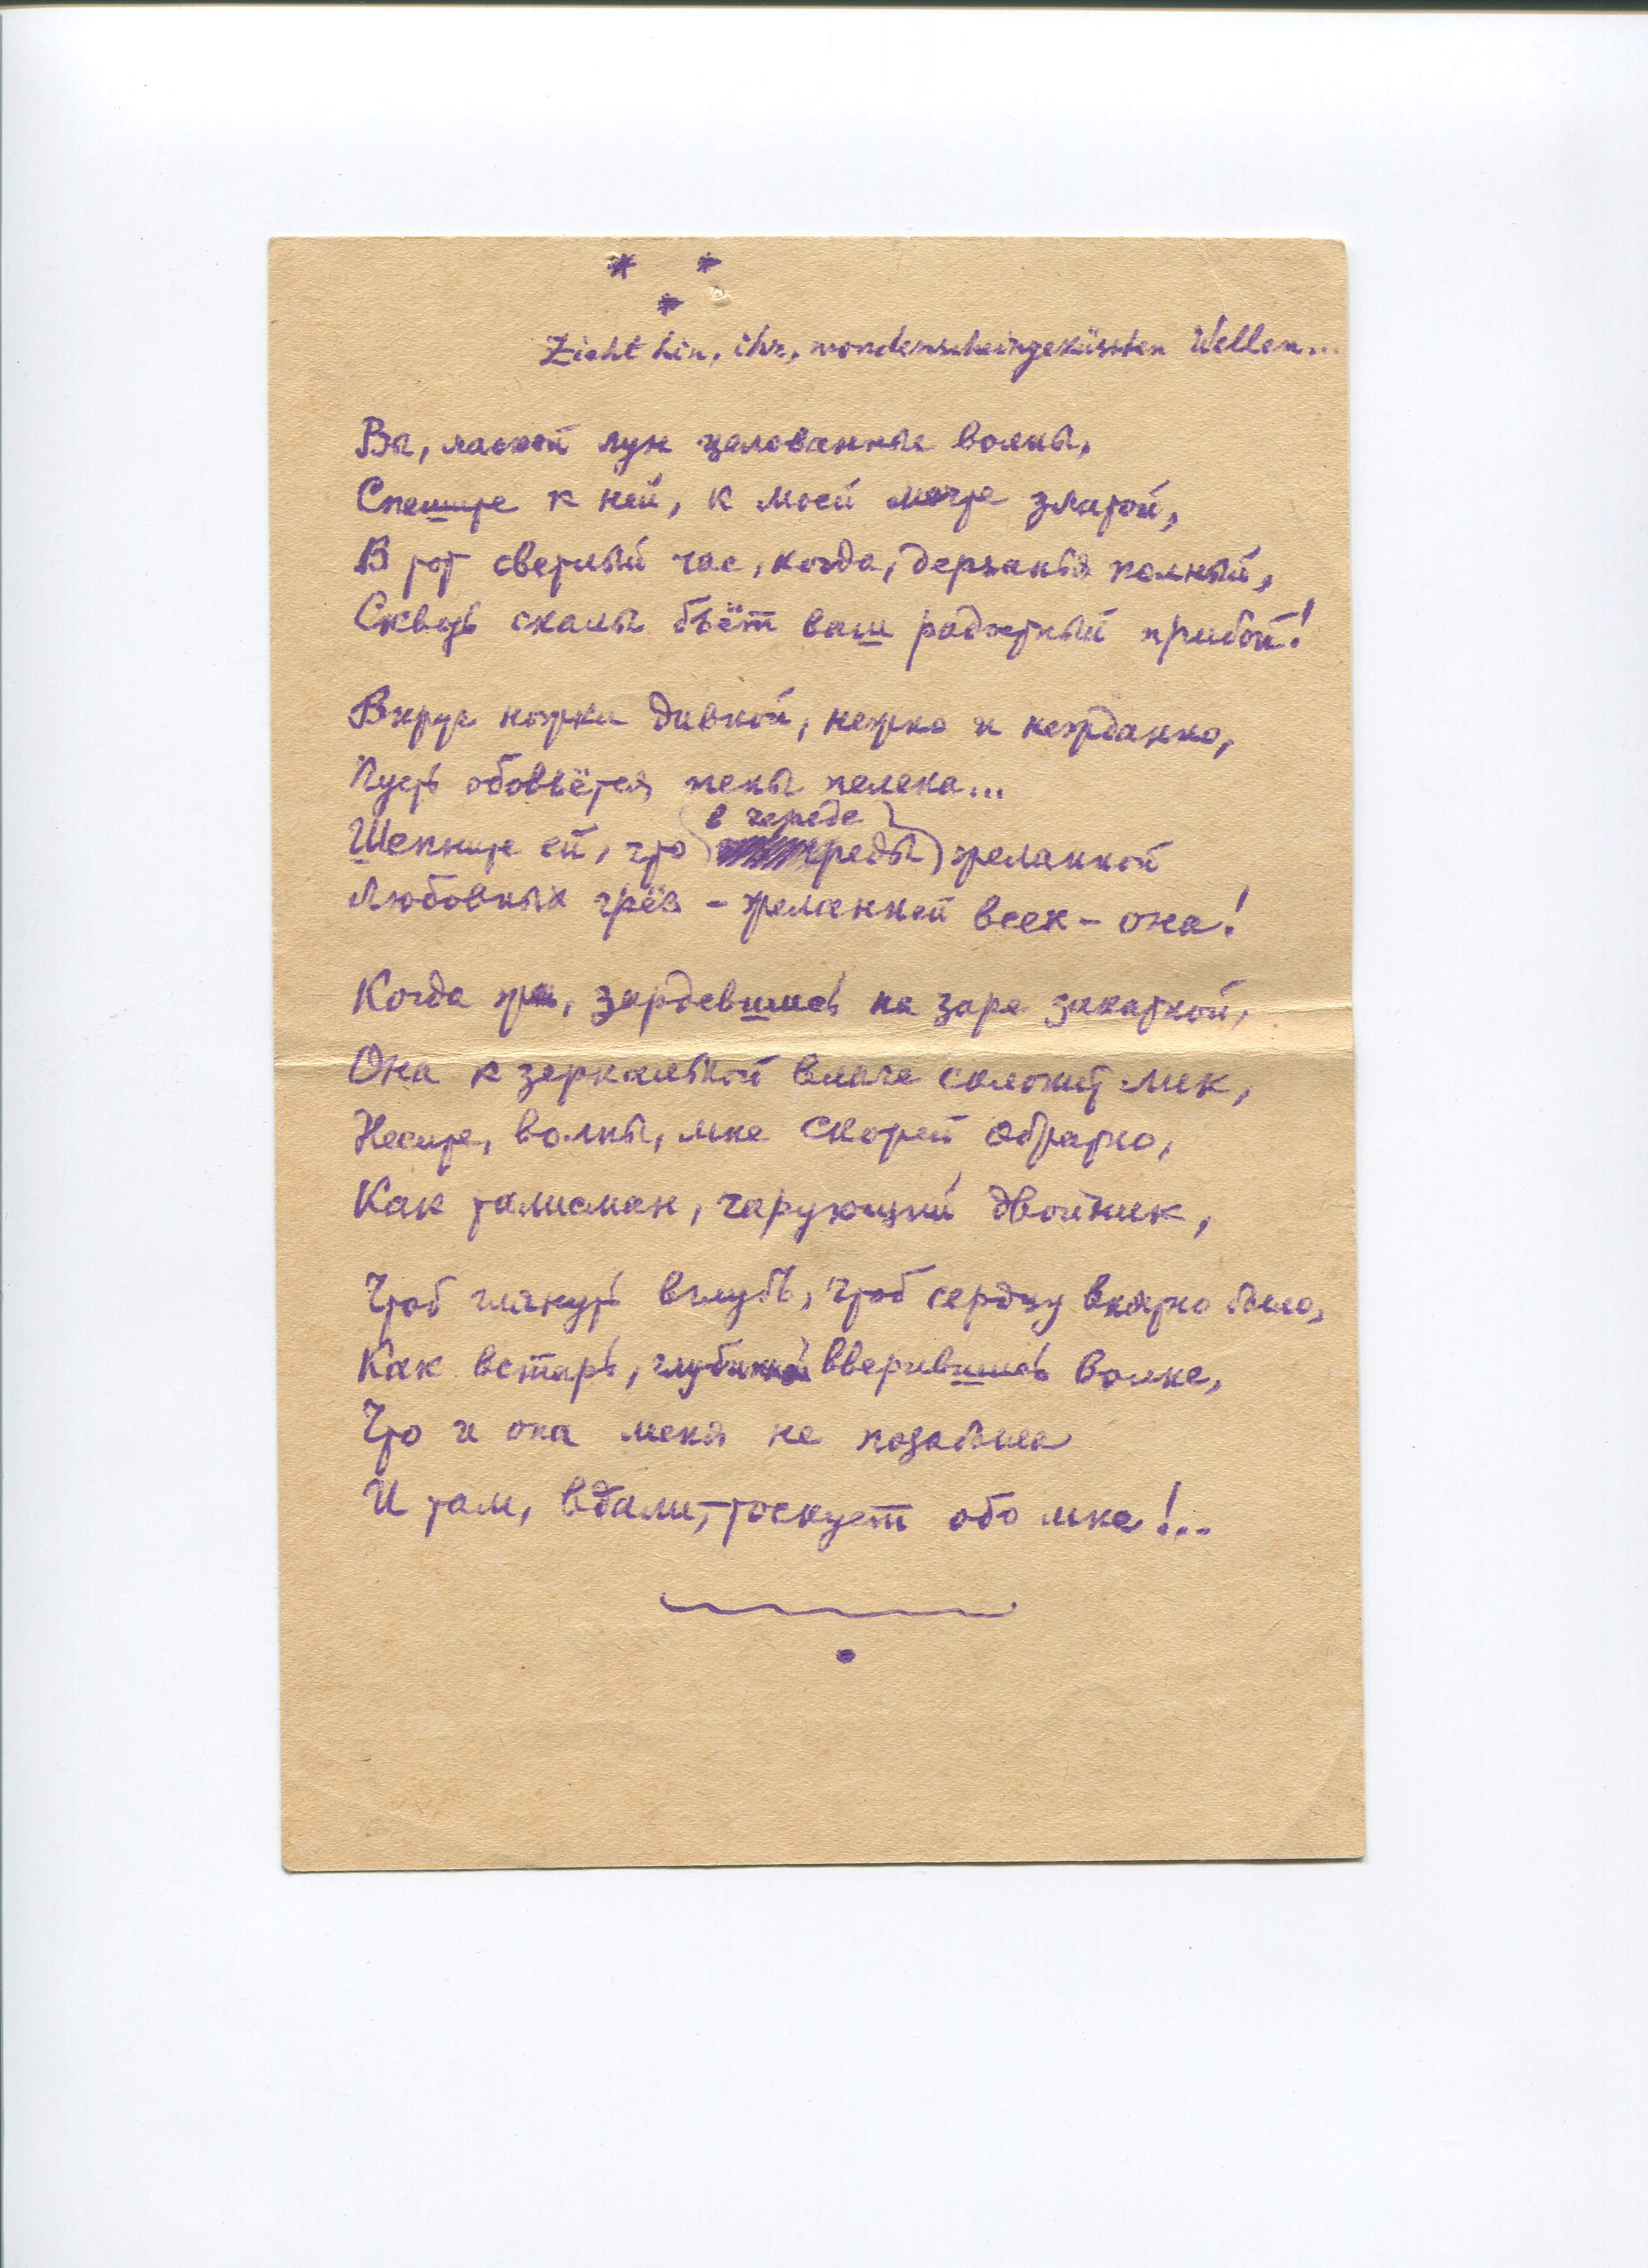 * *
*
Zieht hin, ihr, mondenscheingeküssten Wellen...
Вы, лаской лун целованные волны,
Спешите к ней, к моей мечте златой,
В тот светлый час, когда, дерзанья полный,
Сквозь скалы бьёт ваш радостный прибой!
Вкруг ножки дивной, нежно и нежданно,
Пусть обовьётся пены пелена...
в череде
Шепните ей, что (реды) желанной
Любовных грёз – желанней всех – она!
Когда ж, зардевшись на заре закатной,
Она к зеркальной влаге склонит лик,
Несите, волны, мне скорей обратно,
Как талисман, чарующий двойник,
Чтоб глянуть вглубь, чтоб сердцу внятно было,
Как встарь, глубинной вверившись волне,
Что и она меня не позабыла
И там, вдали, – тоскует обо мне!..